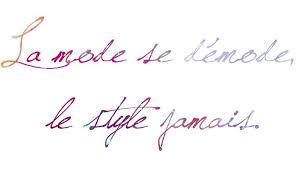 La mode se démode,
le style jamais.